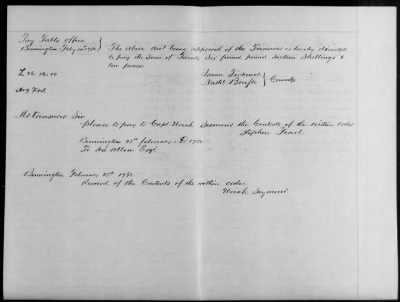 Pay Table Office
Bennington Feby 25th 1782
The above acct being approved of the Treasurer is hereby directed
to pay the Sum of Twenty Six pound pound Sixteen Shillings &
ten pence
£26.16.10
Isaac Tichenor
Nathl Brush
Comtte
Mr Treasurer Sir
please to pay to Capt Uriah Seymour the Contents of the within order
Stephen Pearl
Bennington 25th february 1782
To Ira Allen Esqr
Bennington February 25th 1782
Received of the Contents of the within order
Uriah Seymour